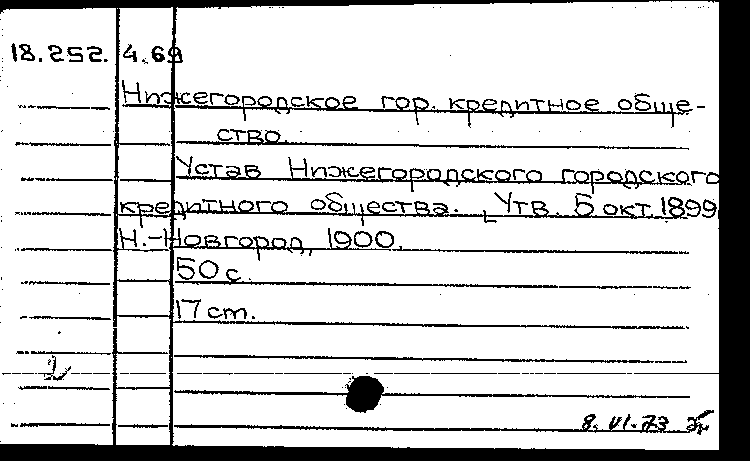 18.252. 4.69
Нижегородское гор. кредитное обще-
ство.
Устав Нижегородского городского
кредитного общества. Утв. 5 окт. 1899
Н.-Новгород, 1900.
50 с.
17 ст.
2
8. VI. 73